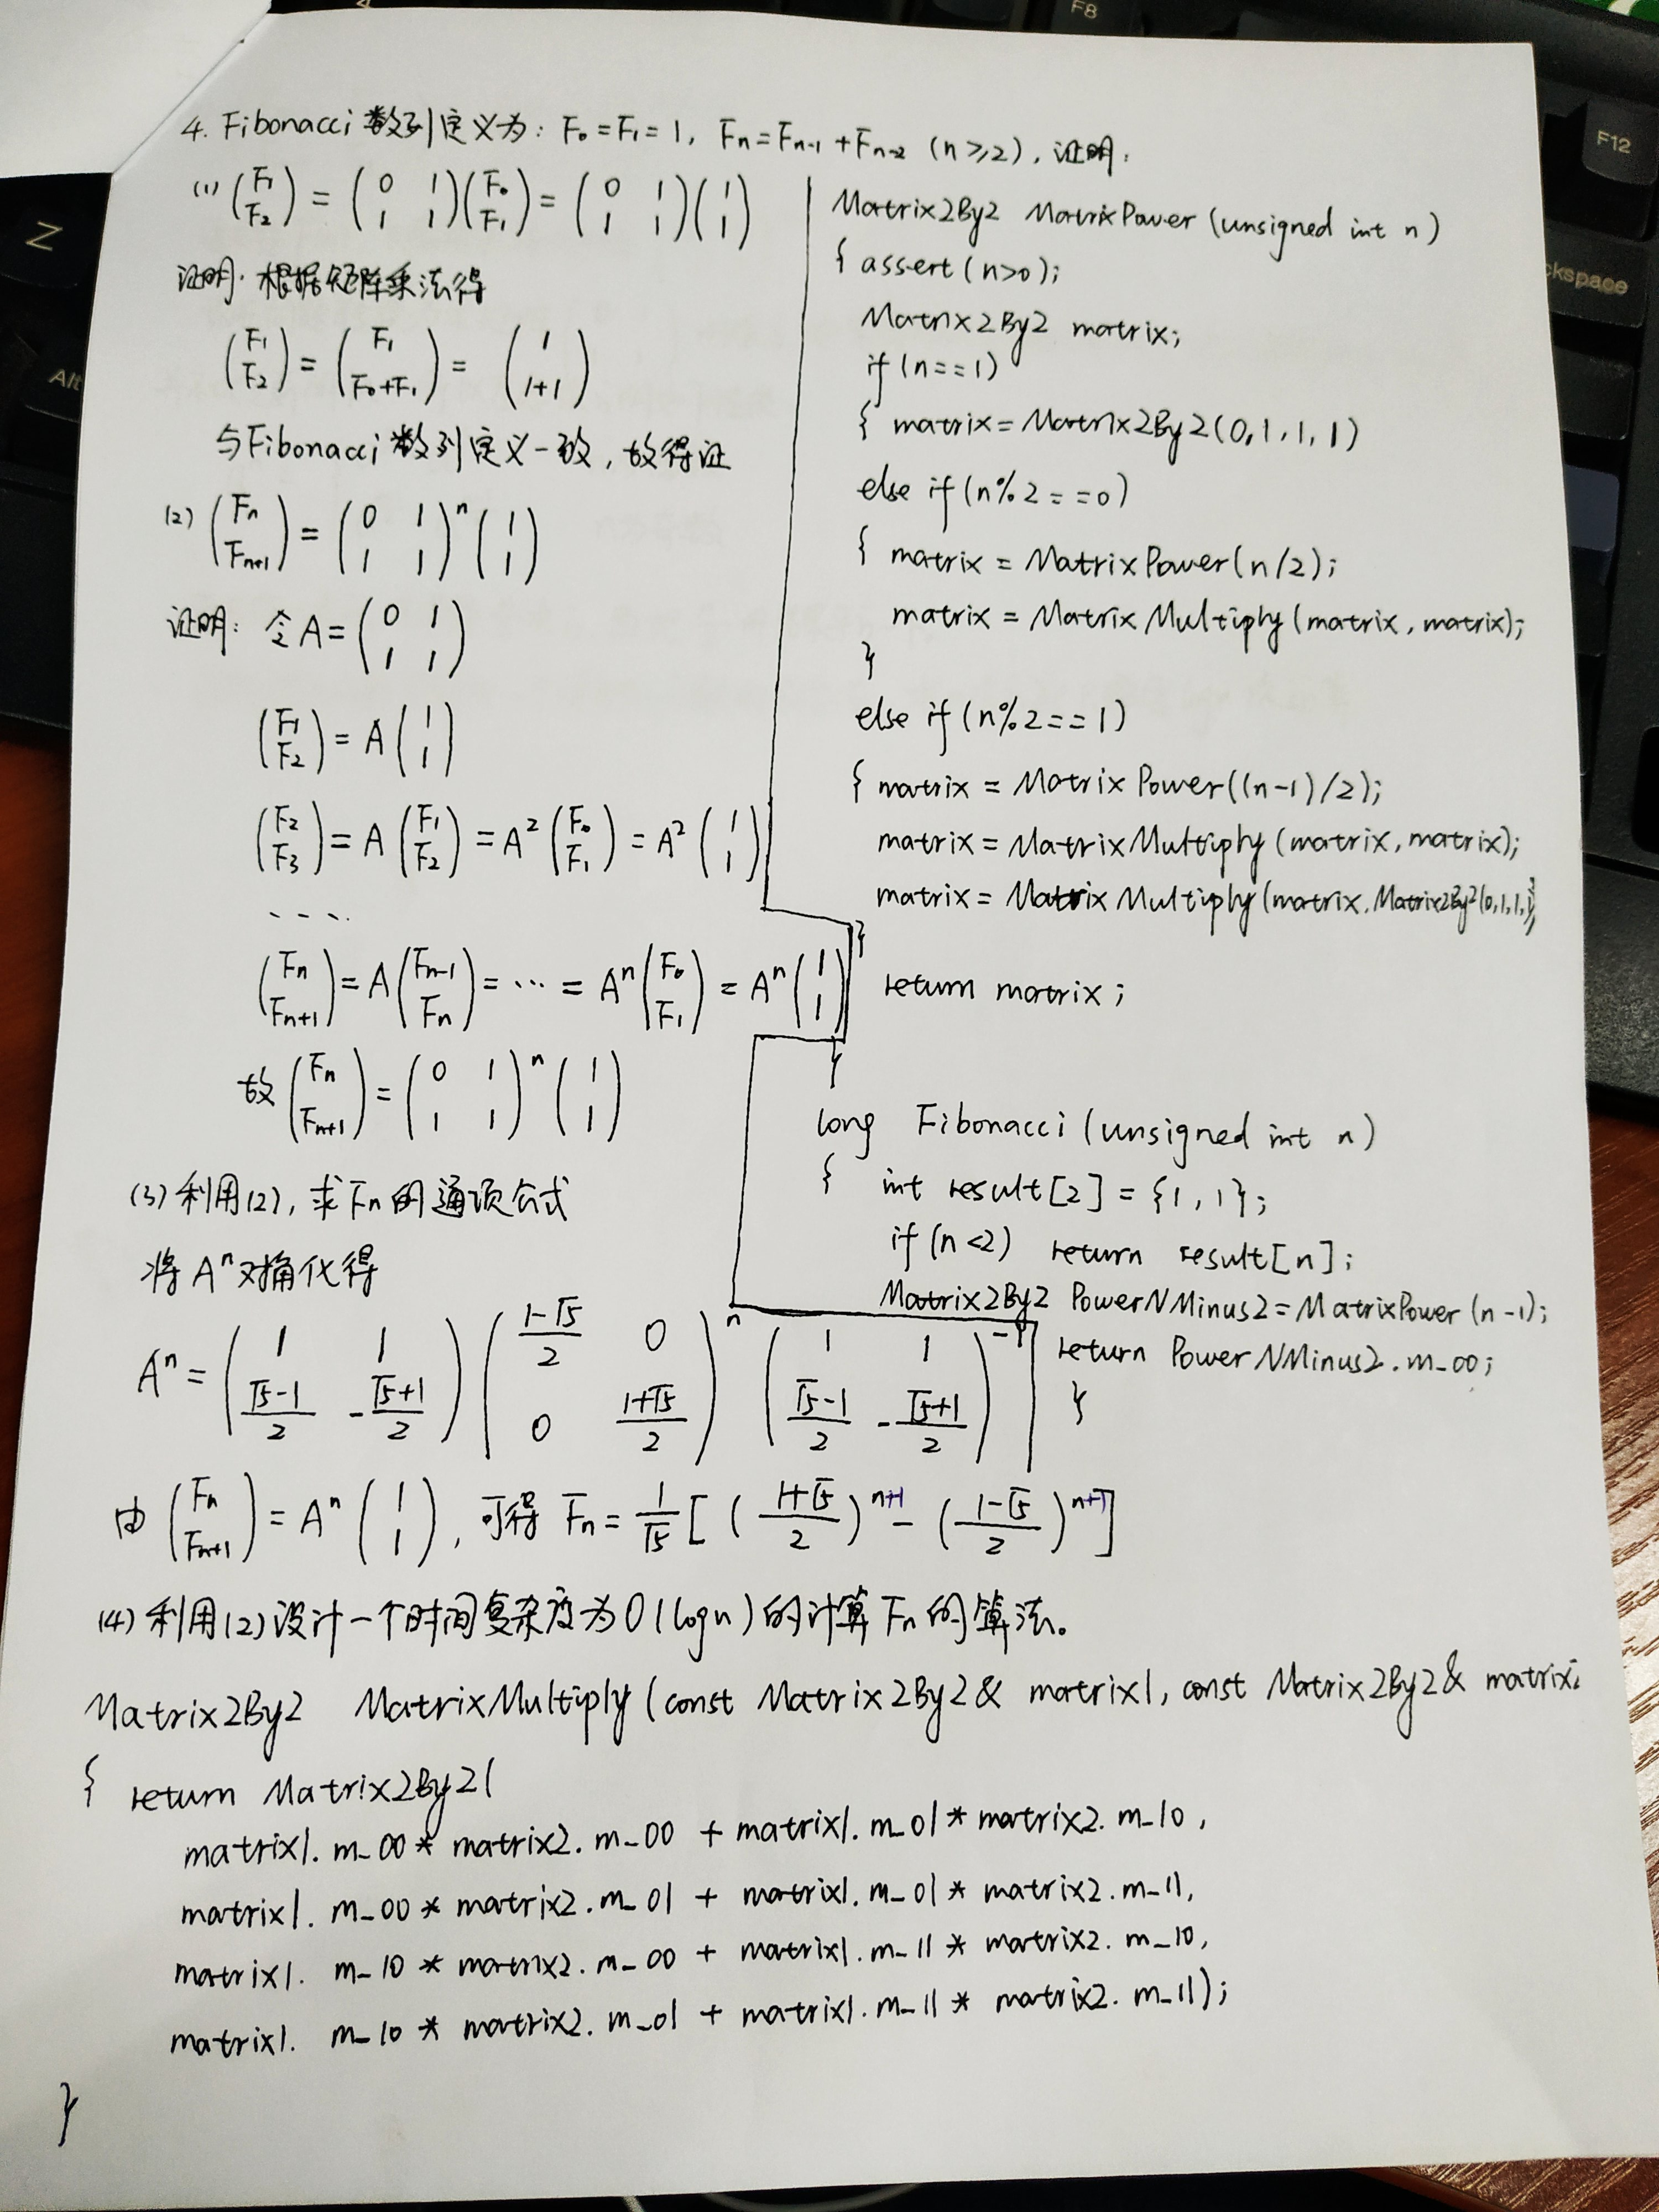 4. Fibonacci 数列定义为: F₀=F₁=1, Fn=Fn-1+Fn-2 (n≥2), 证明:
(1) (F₁ F₂) = (0 1 1 1)(F₀ F₁) = (0 1 1 1)(1 1)
证明: 根据矩阵乘法得
(F₁ F₂) = (F₁ F₀+F₁) = (1 1+1)
与Fibonacci数列定义一致, 故得证
(2) (Fn Fn+1) = (0 1 1 1)ⁿ (1 1)
证明: 令A=(0 1 1 1)
(F₁ F₂) = A (1 1)
(F₂ F₃) = A (F₁ F₂) = A² (F₀ F₁) = A² (1 1)
....
(Fn Fn+1) = A (Fn-1 Fn) = ··· = Aⁿ (F₀ F₁) = Aⁿ (1 1)
故 (Fn Fn+1) = (0 1 1 1)ⁿ (1 1)
(3) 利用(2), 求Fn的通项公式
将Aⁿ对角化得
Aⁿ = (1 1 (√5-1)/2 -(√5+1)/2) ((1-√5)/2 0 0 (1+√5)/2)ⁿ (1 1 (√5-1)/2 -(√5+1)/2)⁻¹
由 (Fn Fn+1) = Aⁿ (1 1), 可得 Fn = 1/√5 [ ((1+√5)/2)ⁿ⁺¹ - ((1-√5)/2)ⁿ⁺¹ ]
(4) 利用(2)设计一个时间复杂度为O(logn)的计算Fn的算法。
Matrix2By2 MatrixMultiply (const Matrix2By2& matrix1, const Matrix2By2&
{ return Matrix2By2(
matrix1. m_00 * matrix2. m_00 + matrix1. m_01 * matrix2. m_10,
matrix1. m_00 * matrix2. m_01 + matrix1. m_01 * matrix2. m_11,
matrix1. m_10 * matrix2. m_00 + matrix1. m_11 * matrix2. m_10,
matrix1. m_10 * matrix2. m_01 + matrix1. m_11 * matrix2. m_11);
}
Matrix2By2 MatrixPower (unsigned int n)
{ assert (n>0);
Matrix2By2 matrix;
if (n==1)
{ matrix = Matrix2By2(0,1,1,1)
else if (n%2==0)
{ matrix = MatrixPower(n/2);
matrix = MatrixMultiply (matrix, matrix);
}
else if (n%2==1)
{ matrix = MatrixPower((n-1)/2);
matrix = MatrixMultiply (matrix, matrix);
matrix = MatrixMultiply (matrix, Matrix2By2(0,1,1,1));
}
return matrix;
}
long Fibonacci (unsigned int n)
{ int result[2] = {1, 1};
if (n<2) return result[n];
Matrix2By2 PowerNMinus2 = MatrixPower (n-1);
return PowerNMinus2. m_00;
}
Z
Alt
F8
F12
ckspace